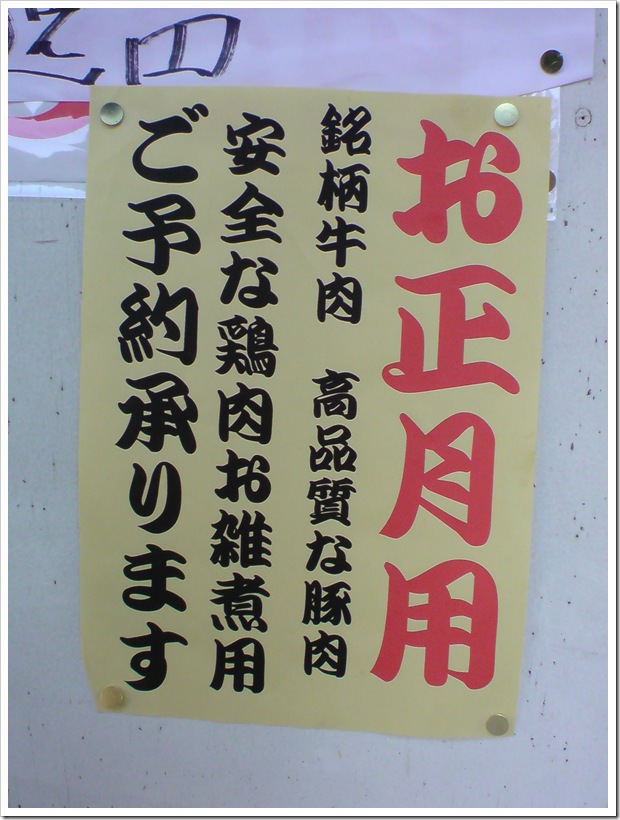 お正月用
銘柄牛肉　高品質な豚肉
安全な鶏肉お雑煮用
ご予約承ります